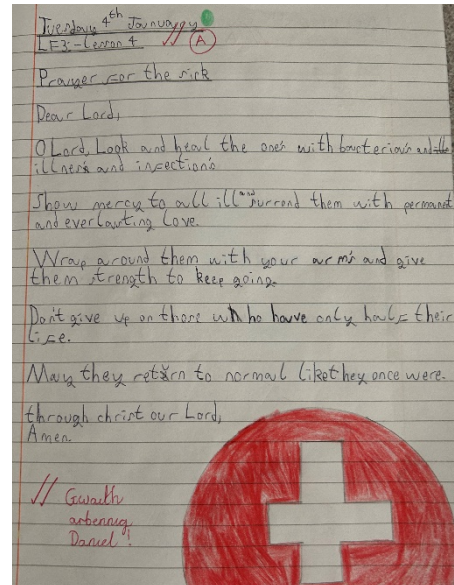 Tuesday 4th January
LF3:-Lesson 4 // A
Prayer for the sick
Dear Lord,
O Lord, Look and heal the one's with bacteria's and
illness and infection's
Show mercy to all ill and surrond them with permanet
and everlasting love.
Wrap around them with your arm's and give
them strength to keep going.
Don't give up on those who have only half their
life.
May they return to normal like they once were.
through christ our Lord,
Amen.
// Gwaith
arbennig
Daniel!